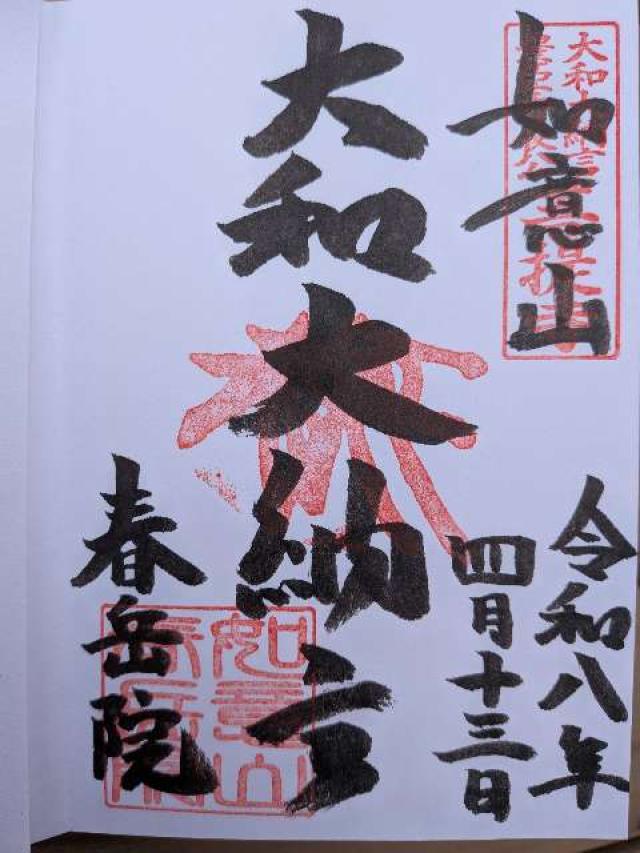 如意山
令和八年
四月十三日
大和大納言
春岳院
如意山
春岳院